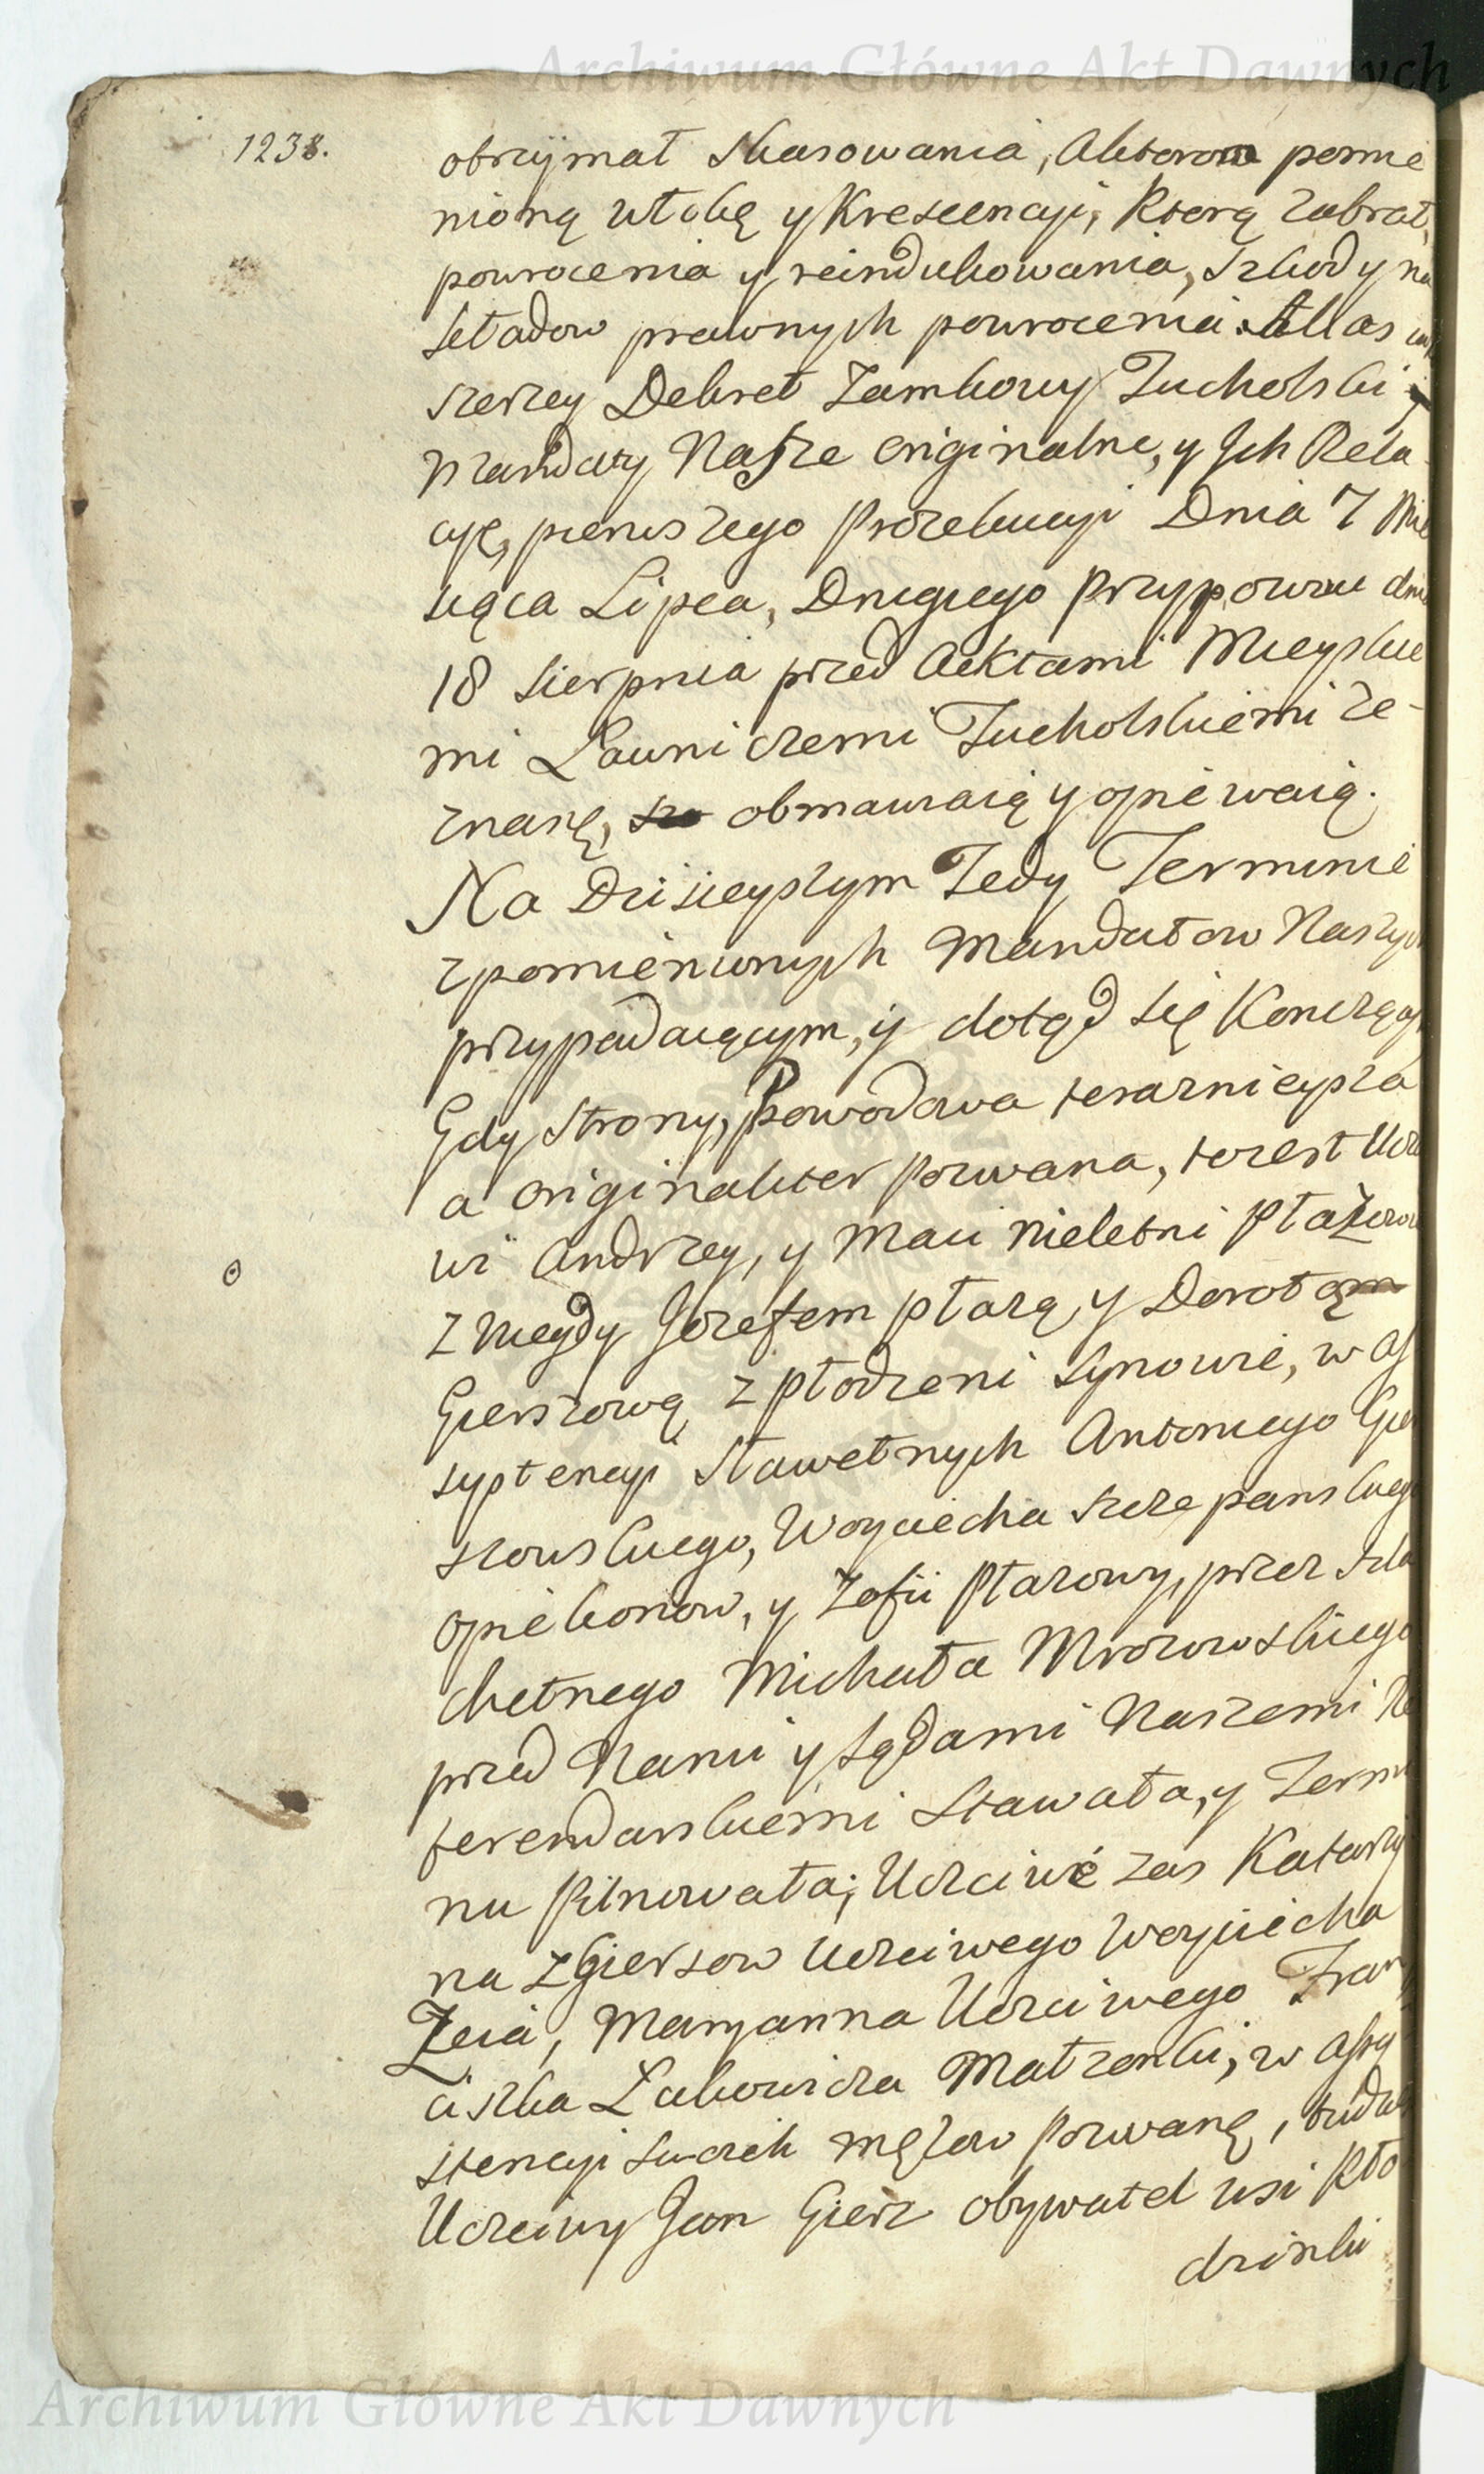 Archiwum Główne Akt Dawnych
1238.
otrzymał skasowania, Aktorom pomie
nioną włokę y Krescencyi, Którą zabrał,
powrocenia y reindukowania, szkod y na
kładow prawnych powrocenia. Atlas
szerzey Dekret Zamkowy Tucholski y
Mandaty Nasze originalne, y Ich Rela
cye, pierwszego Prozekucyi Dnia 7 Mie
siąca Lipca, Drugiego Przypowiu dnia
18 Sierpnia przed Aektami Mieyskie
mi Ławniczemi Tucholskiemi ze-
znane, obmawiaią y opiewaią.
Na Dzisieyszym Tedy Terminie
z pomienionych Mandatow Naszych
przypadaiącym, y dotąd się Kończącym
Gdy Strony, Powodowa teraznieysza
a originaliter Pozwana, to iest Uczci
wi Andrzey, y Maci nieletni Ptaszow
z niegdy Jozefem Ptazą, y Dorotą
Gierszową z płodzeni Synowie, w As
systencyi Sławetnych Antoniego Gier
szowskiego, Woyciecha Szczepanskiego
Opiekonow, y Zofii Ptazowy, przez Szla
chetnego Michała Mrozowskiego
przed Nami y Sądami Naszemi Re
ferendarskiemi stawała, y Termi
nu Pilnowała; Uczciwe zas Katarzy
na z Gierszow Uczciwego Woyciecha
Zeia, Maryanna Uczciwego Fran
ciszka Łukowicza Małzonki, w Assy
stencyi swoich mężow Pozwane, tudzież
Uczciwy Jan Giersz obywatel wsi Kło
dzinki
Archiwum Główne Akt Dawnych